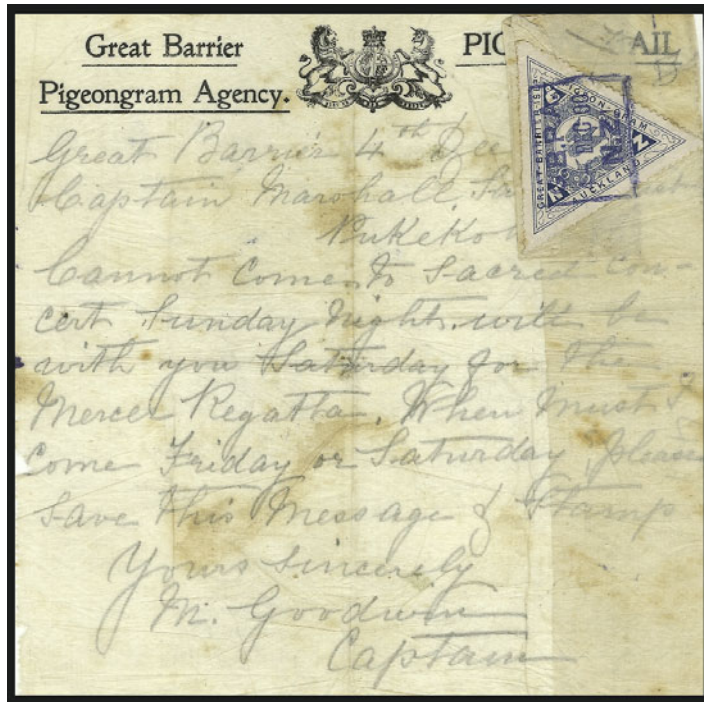 Great Barrier
Pigeongram Agency.
PIG AIL
GREAT BARRIER ISLD
PIGEON-GRAM
AUCKLAND
N Z
DEC 00
N.Z.
Great Barrier 4th Dec
Captain Marshall.
Pukekohe
Cannot Come to Sacred Con-
cert Sunday Night. will be
with you Saturday for the
Mercer Regatta. When Must I
Come Friday or Saturday please
save this Message & Stamp
Yours Sincerely
M. Goodwin
Captain